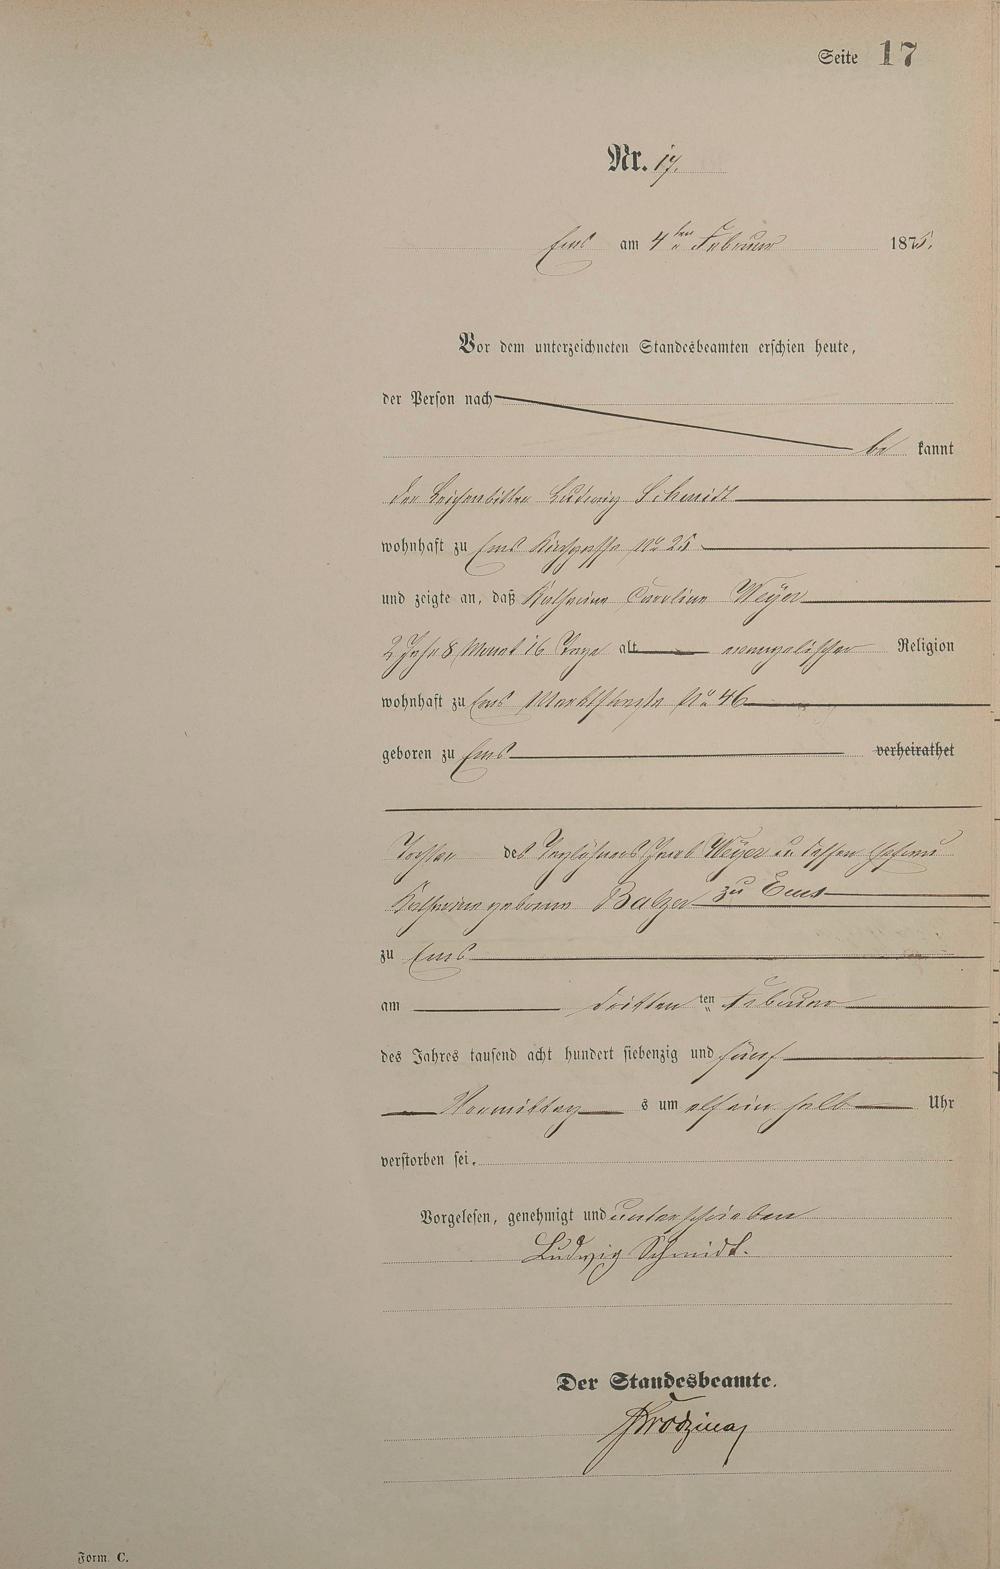 Seite 17
Nr. 17.
Ems am 4ten Februar 1875.
Vor dem unterzeichneten Standesbeamten erschien heute,
der Person nach
be kannt
der Leichenbitter Ludwig Schmidt
wohnhaft zu Ems Kirchgasse No 25
und zeigte an, daß Katharine Caroline Weyer
2 Jahr 8 Monat 16 Tage alt evangelischer Religion
wohnhaft zu Ems Marktstraße No 46
geboren zu Ems verheirathet
Tochter des Taglöhners Jacob Weyer u. dessen Ehefrau
Katharine geborene Balzer zu Ems
zu Ems
am dritten ten Februar
des Jahres tausend acht hundert siebenzig und fünf
Vormittag s um elf ein halb Uhr
verstorben sei.
Vorgelesen, genehmigt und unterschrieben
Ludwig Schmidt.
Der Standesbeamte.
Form. C.